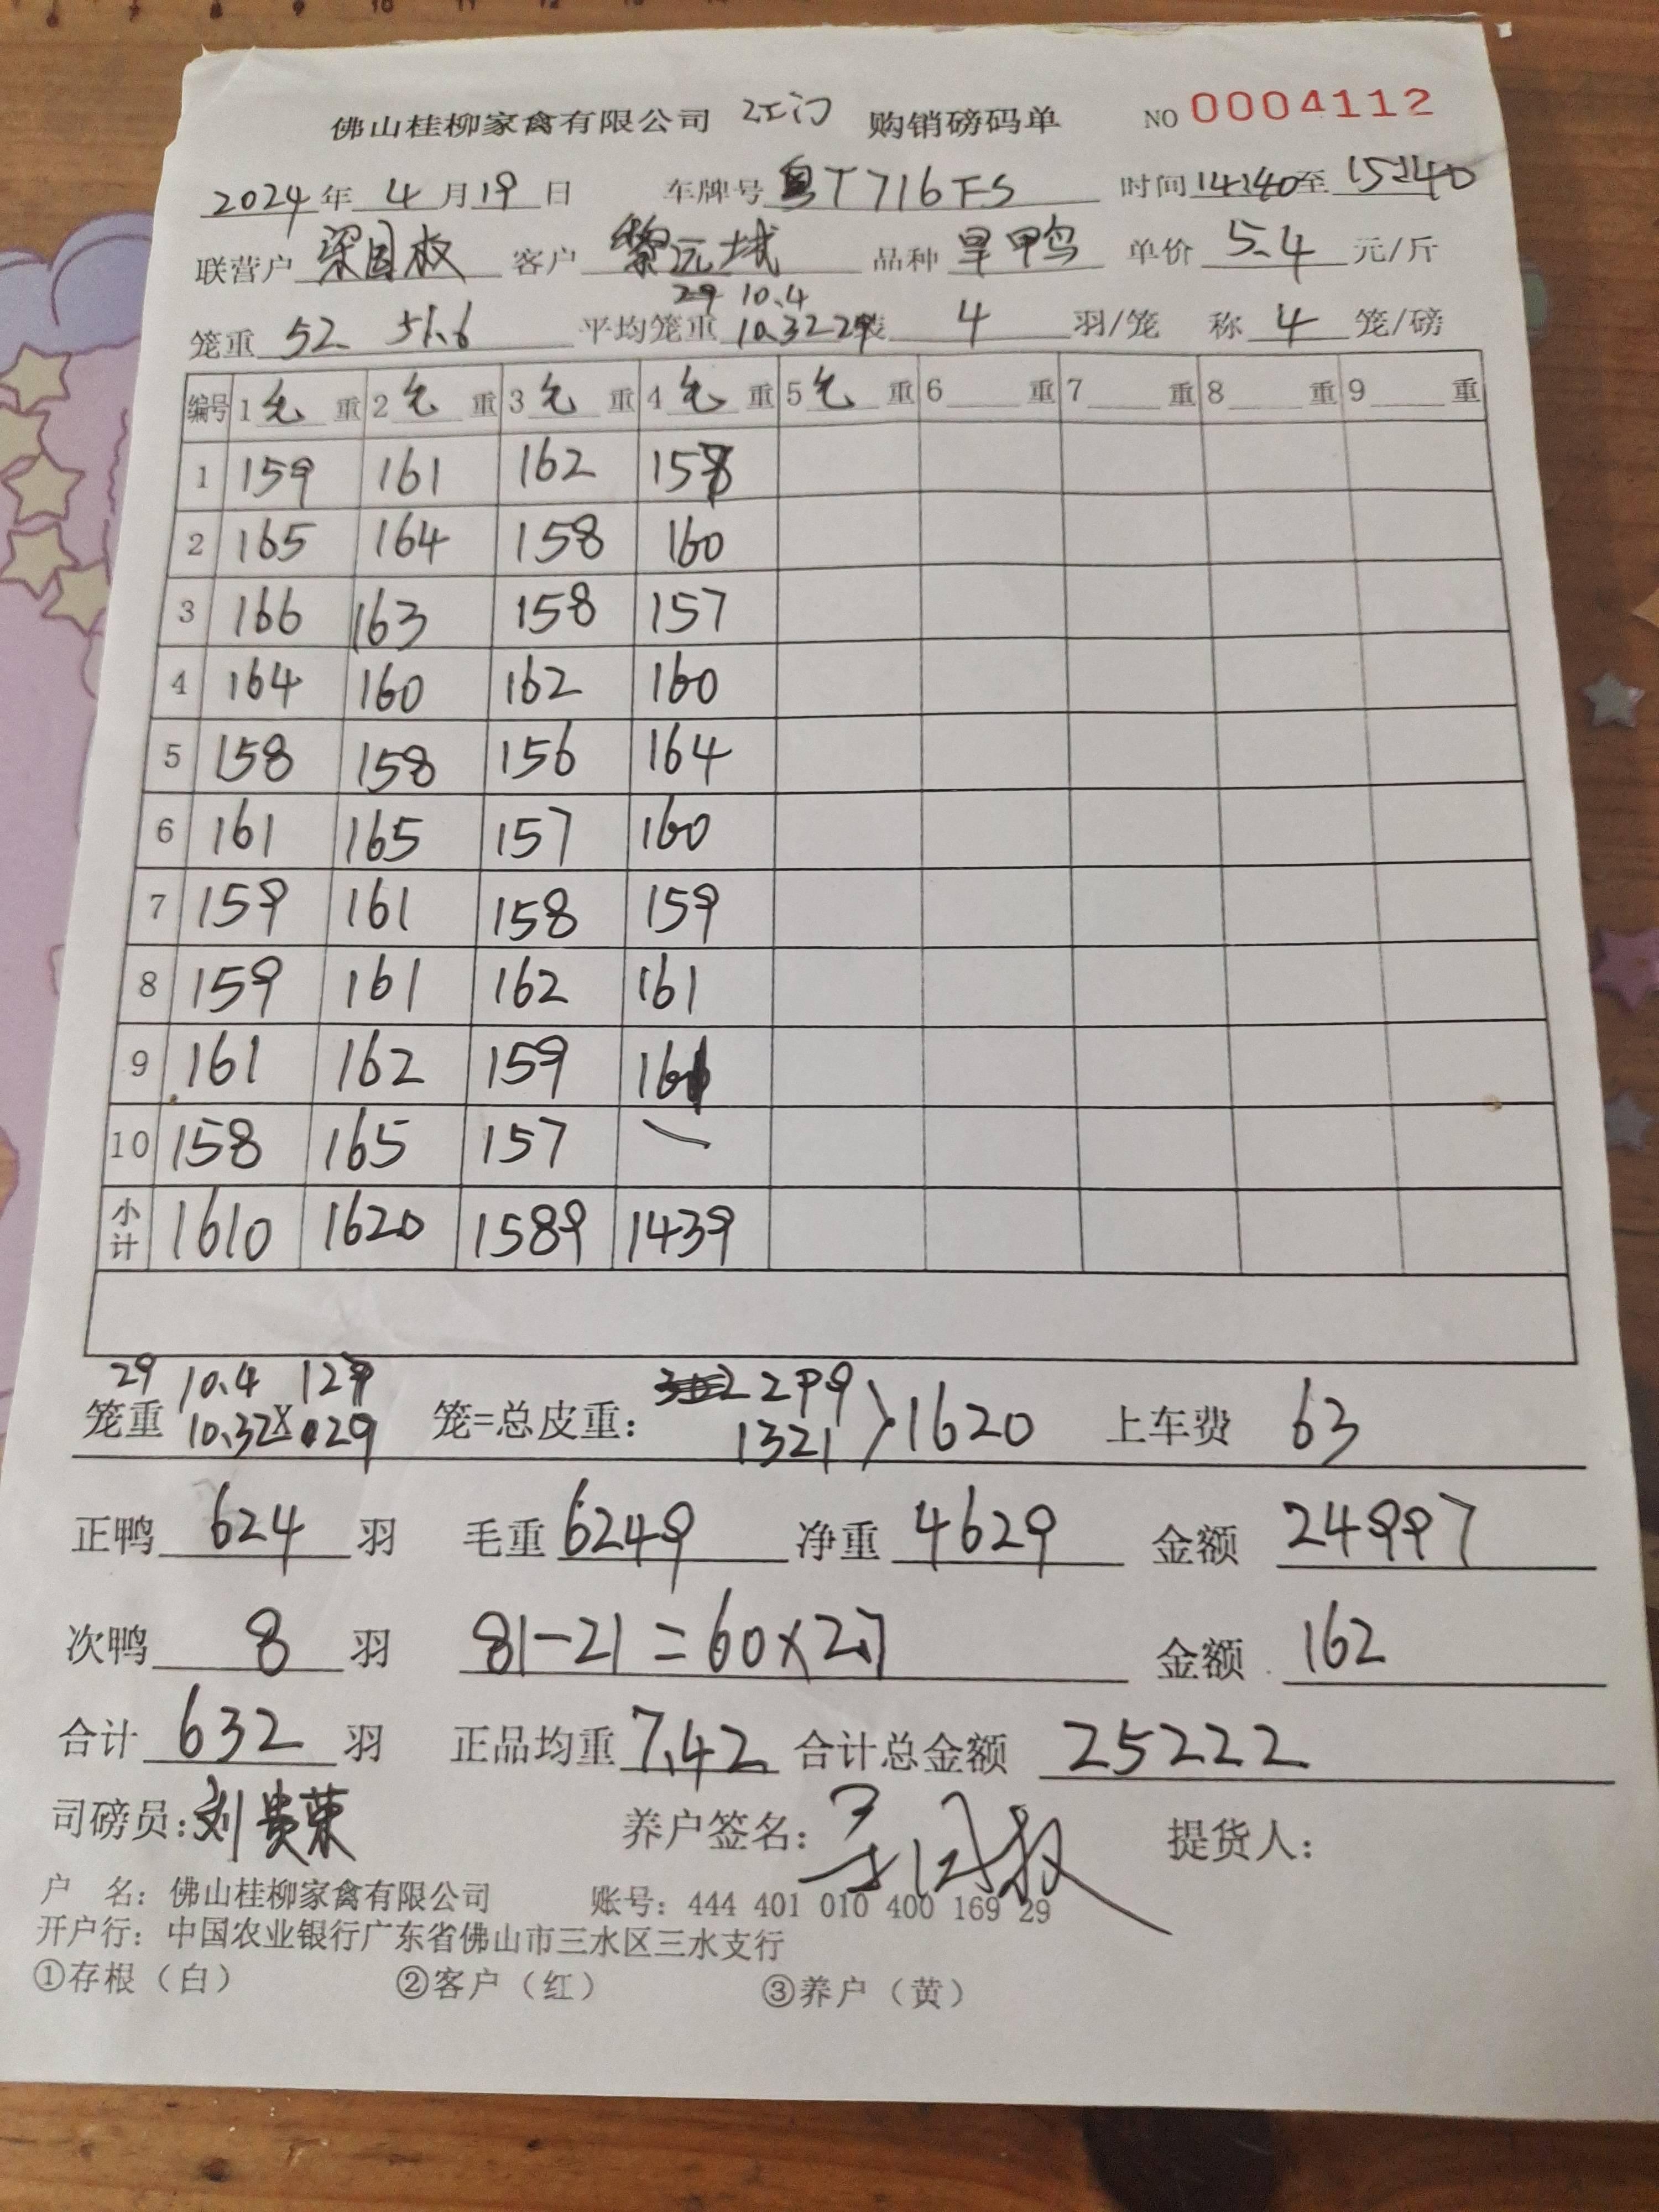 佛山桂柳家禽有限公司 江门 购销磅码单 NO 0004112
2024年 4月19日 车牌号 粤T716FS 时间14:40至15:40
联营户 梁国权 客户 黎沅斌 品种 旱鸭 单价 5.4 元/斤
29 10.4
笼重 52 51.6 平均笼重 10.32 29 装 4 羽/笼 称 4 笼/磅
编号 1 毛 重 2 毛 重 3 毛 重 4 毛 重 5 毛 重 6 重 7 重 8 重 9 重
1 159 161 162 158
2 165 164 158 160
3 166 163 158 157
4 164 160 162 160
5 158 158 156 164
6 161 165 157 160
7 159 161 158 159
8 159 161 162 161
9 161 162 159
10 158 165 157 —
小计 1610 1620 1589 1439
29 10.4 299
笼重 10.32X 笼=总皮重: 1321 >1620 上车费 63
正鸭 624 羽 毛重 6249 净重 4629 金额 24997
次鸭 8 羽 81-21=60×2.7 金额 162
合计 632 羽 正品均重 7.42 合计总金额 25222
司磅员:刘贵荣 养户签名: 提货人:
户 名: 佛山桂柳家禽有限公司 账号: 444 401 010 400 169 29
开户行: 中国农业银行广东省佛山市三水区三水支行
①存根（白） ②客户（红） ③养户（黄）